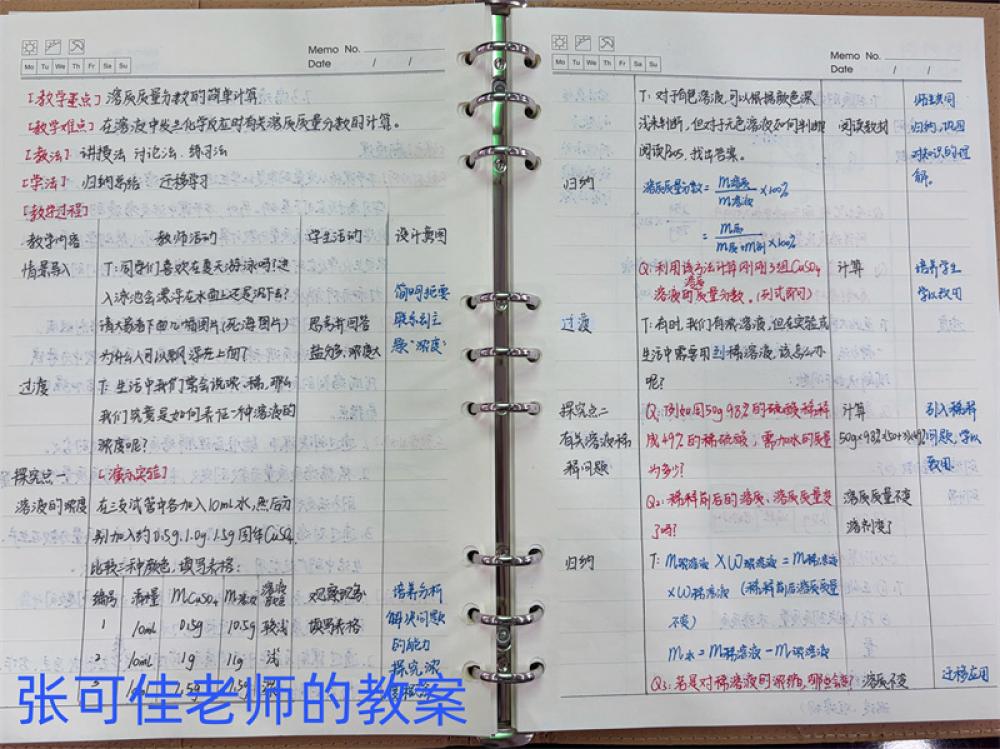 Memo No.
Date / /
Mo Tu We Th Fr Sa Su
[教学重点] 溶质质量分数的简单计算
[教学难点] 在溶液中发生化学反应时有关溶质质量分数的计算。
[教法] 讲授法 讨论法 练习法
[学法] 归纳总结 迁移学习
[教学过程]
教学内容 教师活动 学生活动 设计意图
情景导入 T:同学们喜欢在夏天游泳吗?进
入泳池会漂浮在水面上还是沉下去? 简明扼要
请大家看下面几幅图片(死海图片) 思考并回答 联系到主
为什么人可以飘浮在上面? 盐分多,浓度大 题"浓度"
过渡 T:生活中我们常会说浓、稀,那么
我们究竟是如何表征一种溶液的
浓度呢?
探究点一 [演示实验]
溶液的浓度 在三支试管中各加入10mL水,然后分
别加入约0.5g、1.0g、1.5g固体CuSO₄
比较三种颜色,填写表格:
编号 水量 mCuSO₄ m溶液 溶液颜色 观察现象 培养分析
1 10mL 0.5g 10.5g 较浅 填写表格 解决问题
2 10mL 1g 11g 浅 的能力
探究浓
张可佳老师的教案
Memo No.
Date / /
Mo Tu We Th Fr Sa Su
T:对于有色溶液,可以根据颜色深 师生共同
浅来判断,但对于无色溶液如何判断 阅读教材 归纳,巩固
阅读P45,找出答案。 对知识的理
归纳 溶质质量分数=m溶质/m溶液×100% 解。
=m质/m质+m剂×100%
Q:利用该方法计算刚刚3组CuSO₄ 计算 培养学生
溶液的溶质质量分数。(列式即可) 学以致用
过渡 T:有时,我们有浓溶液,但在实验或
生活中需要用到稀溶液,该怎么办
呢?
探究点二 Q₁例如用50g 98%的硫酸稀释 计算 引入稀释
有关溶液稀 成49%的稀硫酸,需加水的质量 50g×98%=(50+x)×49% 问题,学以
释问题 为多少? 致用
Q₂:稀释前后的溶质、溶质质量变 溶质质量不变
了吗? 溶剂变了
归纳 T:m浓溶液×W浓溶液=m稀溶液
×W稀溶液 (稀释前后溶质质量
不变)
m水=m稀溶液-m浓溶液
溶质不变 迁移应用